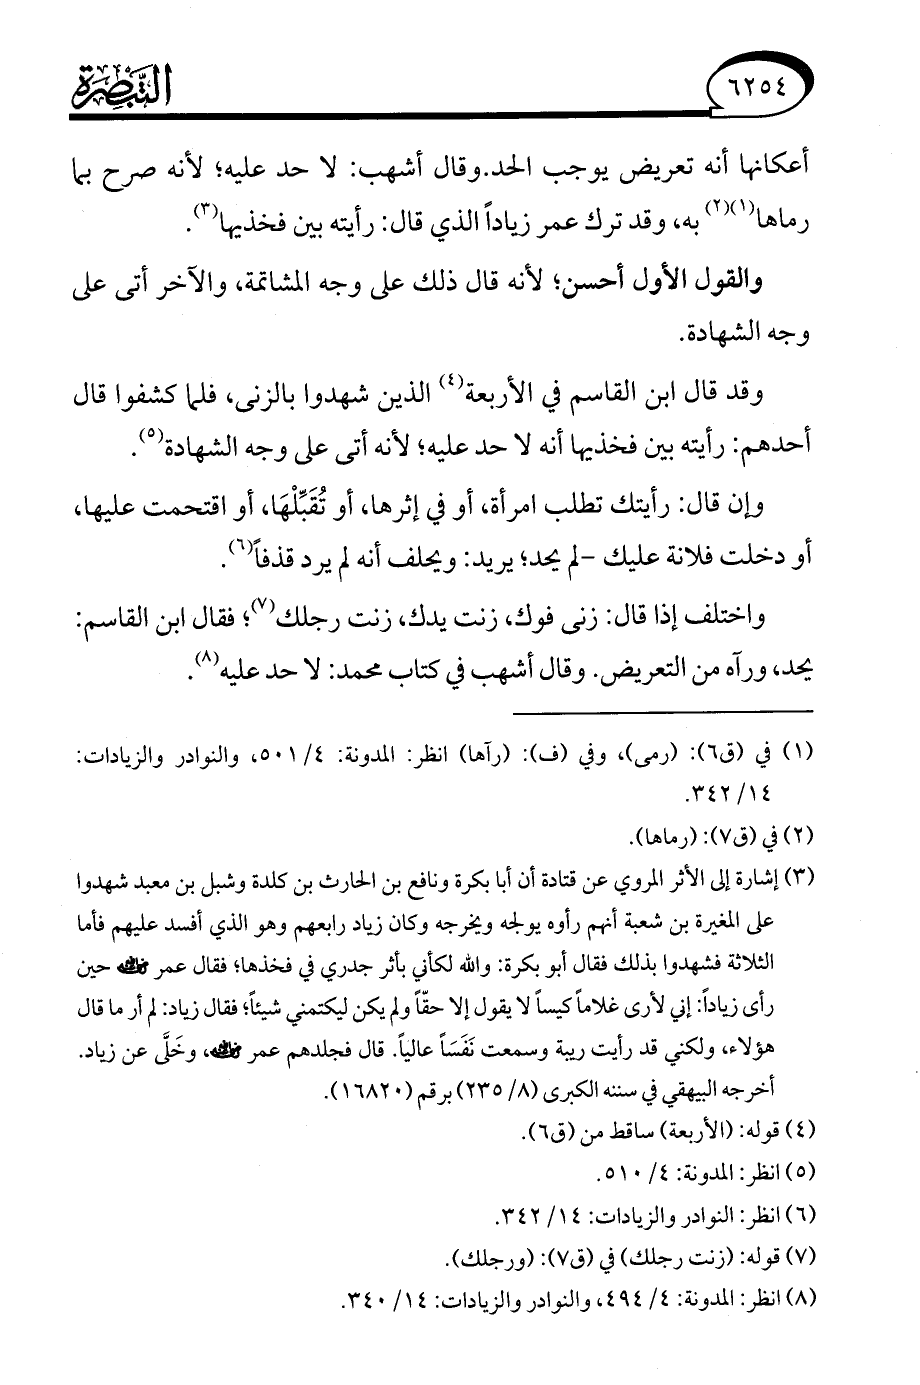 ٦٢٥٤
التبصرة
أعكانها أنه تعريض يوجب الحد.وقال أشهب: لا حد عليه؛ لأنه صرح بما
رماها(١)(٢) به، وقد ترك عمر زياداً الذي قال: رأيته بين فخذيها(٣).
والقول الأول أحسن؛ لأنه قال ذلك على وجه المشاتمة، والآخر أتى على
وجه الشهادة.
وقد قال ابن القاسم في الأربعة(٤) الذين شهدوا بالزنى، فلما كشفوا قال
أحدهم: رأيته بين فخذيها أنه لا حد عليه؛ لأنه أتى على وجه الشهادة(٥).
وإن قال: رأيتك تطلب امرأة، أو في إثرها، أو تُقَبِّلْهَا، أو اقتحمت عليها،
أو دخلت فلانة عليك -لم يحد؛ يريد: ويحلف أنه لم يرد قذفاً(٦).
واختلف إذا قال: زنى فوك، زنت يدك، زنت رجلك(٧)؛ فقال ابن القاسم:
يحد، ورآه من التعريض. وقال أشهب في كتاب محمد: لا حد عليه(٨).
(١) في (ق٦): (رمى)، وفي (ف): (رآها) انظر: المدونة: ٤/ ٥٠١، والنوادر والزيادات:
١٤/ ٣٤٢.
(٢) في (ق٧): (رماها).
(٣) إشارة إلى الأثر المروي عن قتادة أن أبا بكرة ونافع بن الحارث بن كلدة وشبل بن معبد شهدوا
على المغيرة بن شعبة أنهم رأوه يولجه ويخرجه وكان زياد رابعهم وهو الذي أفسد عليهم فأما
الثلاثة فشهدوا بذلك فقال أبو بكرة: والله لكأني بأثر جدري في فخذها؛ فقال عمر رضي الله عنه حين
رأى زياداً: إني لأرى غلاماً كيساً لا يقول إلا حقّاً ولم يكن ليكتمني شيئاً؛ فقال زياد: لم أر ما قال
هؤلاء، ولكني قد رأيت ريبة وسمعت نَفَسَاً عالياً. قال فجلدهم عمر رضي الله عنه، وخَلَّى عن زياد.
أخرجه البيهقي في سننه الكبرى (٨/ ٢٣٥) برقم (١٦٨٢٠).
(٤) قوله: (الأربعة) ساقط من (ق٦).
(٥) انظر: المدونة: ٤/ ٥١٠.
(٦) انظر: النوادر والزيادات: ١٤/ ٣٤٢.
(٧) قوله: (زنت رجلك) في (ق٧): (ورجلك).
(٨) انظر: المدونة: ٤/ ٤٩٤، والنوادر والزيادات: ١٤/ ٣٤٠.